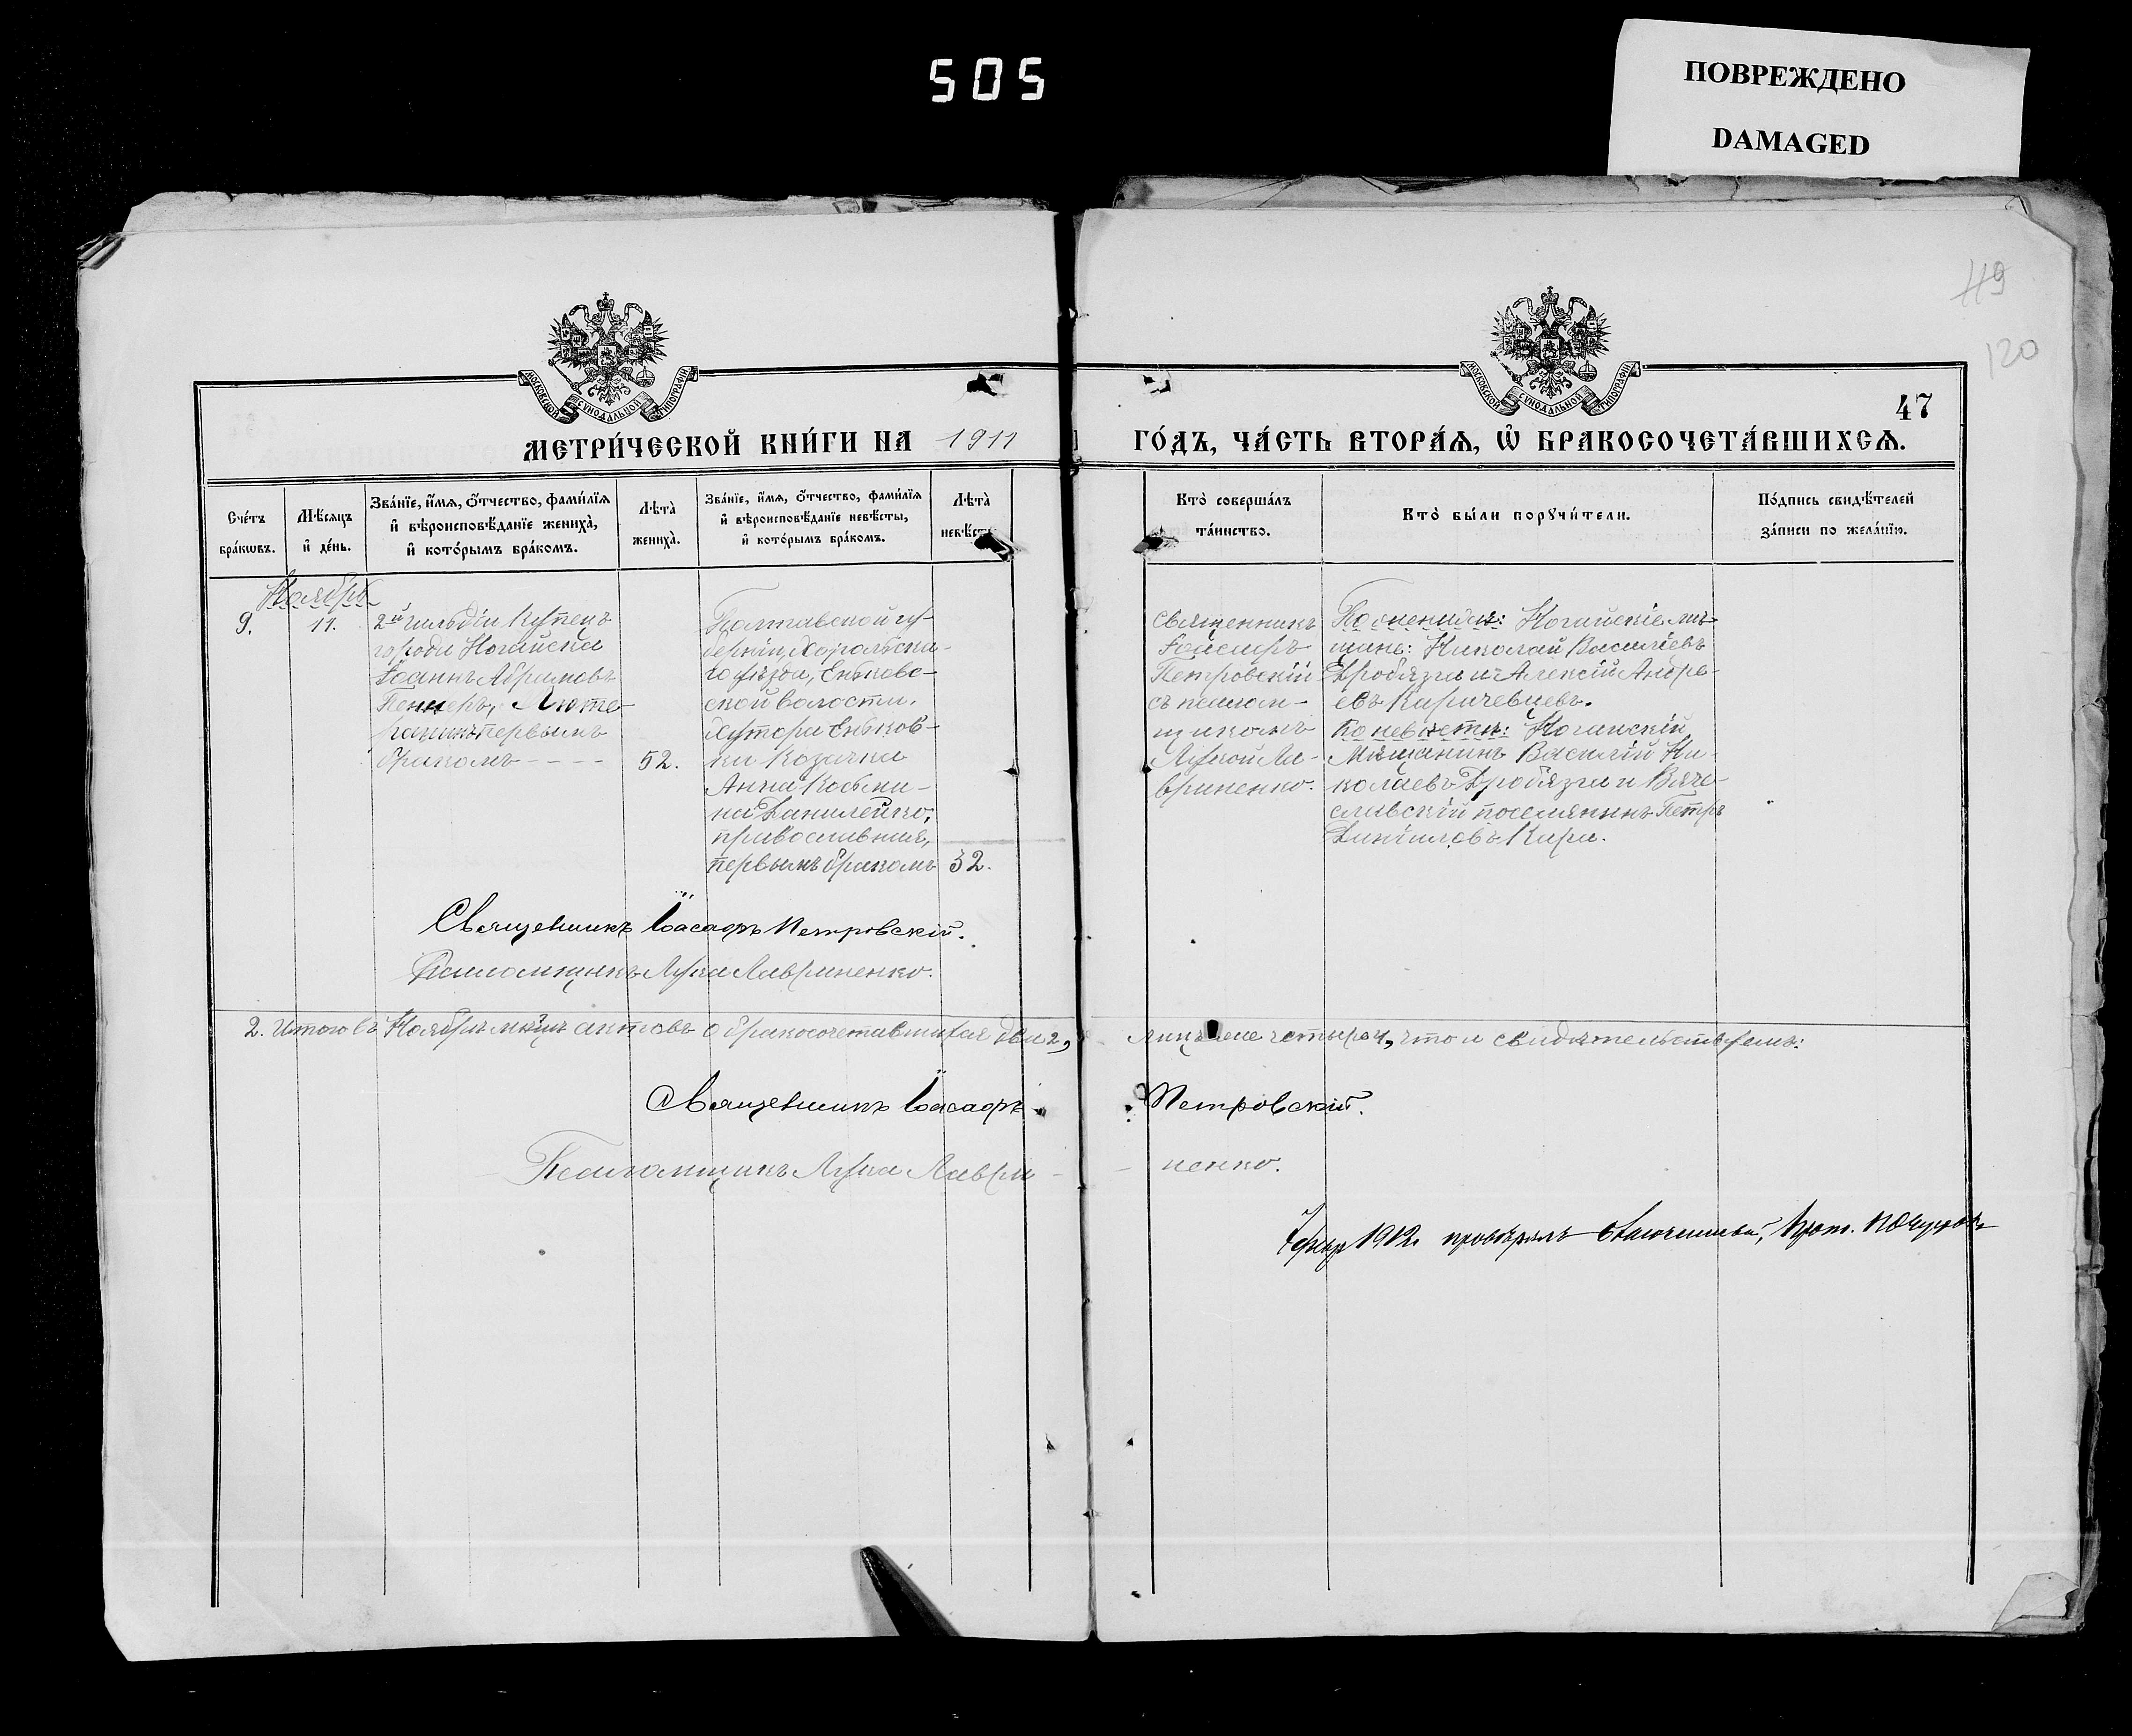 505
ПОВРЕЖДЕНО
DAMAGED
119
120
47
МОСКОВСКОЙ СѴНОДАЛЬНОЙ ТИПОГРАФІИ
МОСКОВСКОЙ СѴНОДАЛЬНОЙ ТИПОГРАФІИ
МЕТРИ́ЧЕСКОЙ КНИ́ГИ НА 1911 ГО́ДЪ, ЧА́СТЬ ВТОРА́Я, Ѡ БРАКОСОЧЕТА́ВШИХСЯ.
Сче́тъ
бра́кѡвъ.
Мѣ́сяцъ
и҆ де́нь.
Зва́нїе, и҆́мя, ѻ҆́тчество, фами́лїя
и҆ вѣроисповѣ́данїе жениха̀,
и҆ кото́рымъ бра́комъ.
Лѣта̀
жениха̀.
Зва́нїе, и҆́мя, ѻ҆́тчество, фами́лїя
и҆ вѣроисповѣ́данїе невѣ́сты,
и҆ кото́рымъ бра́комъ.
Лѣта̀
невѣ́сты
Кто̀ соверша́лъ
та́инство.
Кто̀ бы́ли порꙋчи́тели.
По́дпись свидѣ́телей
за́писи по жела́нїю.
Ноябрь
9.
11.
2й гильдіи Купецъ
города Ногайска
Іоаннъ Абрамовъ
Пеннеръ, Люте-
ранинъ первымъ
бракомъ - - - -
52.
Полтавской гу-
берніи, Хорольска-
го уѣзда, Еньковс-
ской волости,
хутора Еньков-
ки козачка
Анна
на Данилейко,
православная,
первымъ бракомъ
32.
Священникъ
Іоасафъ
Петровскій
съ псалом-
щикомъ
Лукой Ла-
вриненко.
По женихѣ: Ногайскіе мѣ-
щане: Николай Васильевъ
Дробязга и Алексій Андре-
евъ Киричевцевъ.
По невѣстѣ: Ногайскій
Мѣщанинъ Василій Ни-
колаевъ Дробязга и Вяче-
славскій поселянинъ Петръ
Даниловъ Кара.
Священникъ Іоасафъ Петровскій.
Псаломщикъ Лука Лавриненко.
2. Итого въ Ноябрѣ м-цѣ актовъ о бракосочетавшихся два 2, лицъ же четыре 4, что и свидѣтельствуемъ:
Священникъ Іоасафъ Петровскій.
Псаломщикъ Лука Лаври- ненко.
1912 провѣрялъ Прот.